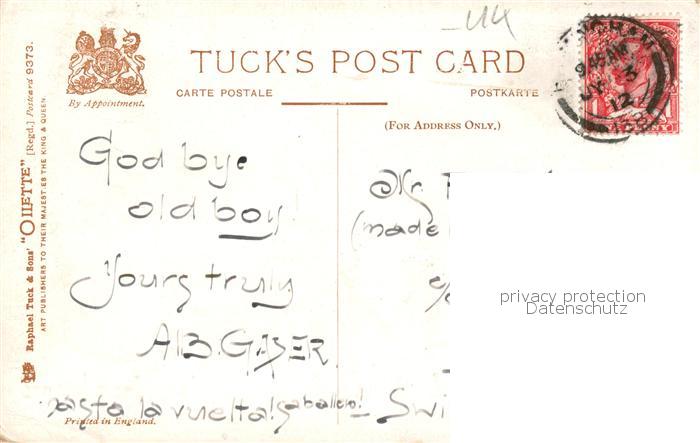 -UK
TUCK'S POST CARD
By Appointment.
CARTE POSTALE
POSTKARTE
(FOR ADDRESS ONLY.)
Raphael Tuck & Sons' "OILETTE" [Regd.] Postcard 9373.
ART PUBLISHERS TO THEIR MAJESTIES THE KING & QUEEN.
God bye
old boy!
Yours truly
A.B. GASER
hasta la vuelta! Caballero!
Printed in England.
Mr.
(made
c/o
Swi
NGHAM
9 45 AM
JY 3
12
138
privacy protection
Datenschutz